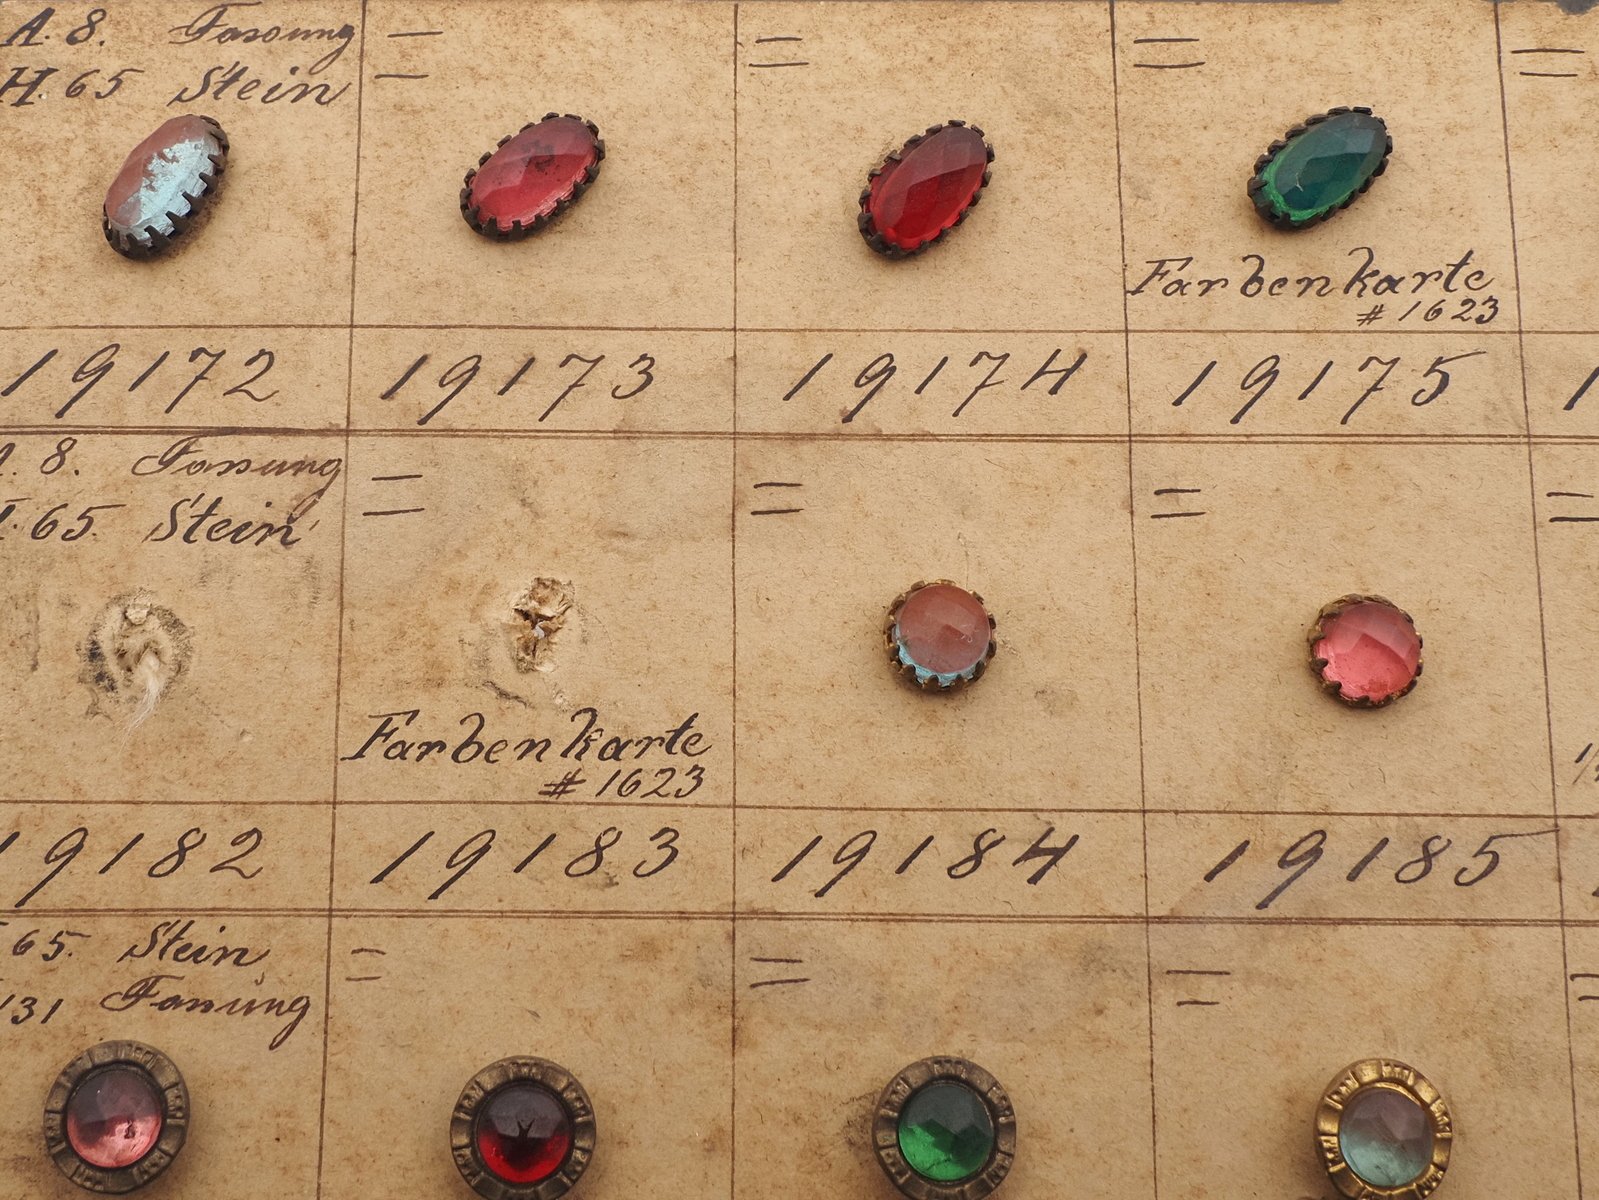 A. 8. Fassung
H. 65 Stein
=
=
=
=
Farbenkarte
# 1623
19172
19173
19174
19175
1
8. Fassung
65. Stein
=
=
=
=
Farbenkarte
# 1623
19182
19183
19184
19185
65. Stein
131 Fassung
=
=
=
=